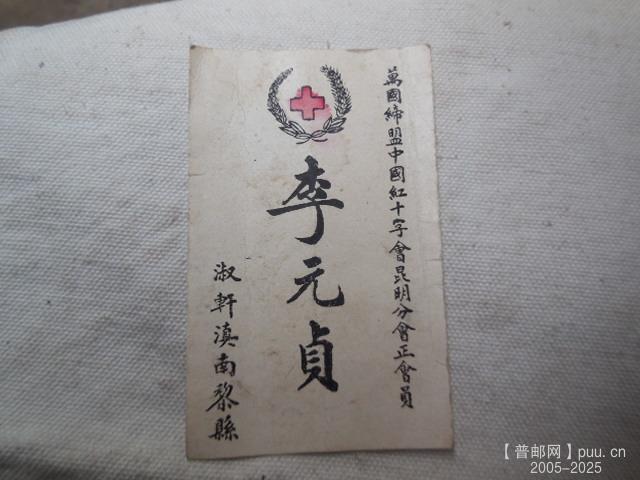 萬國締盟中國紅十字會昆明分會正會員
李元貞
淑軒滇南黎縣
【普邮网】puu.cn
2005-2025